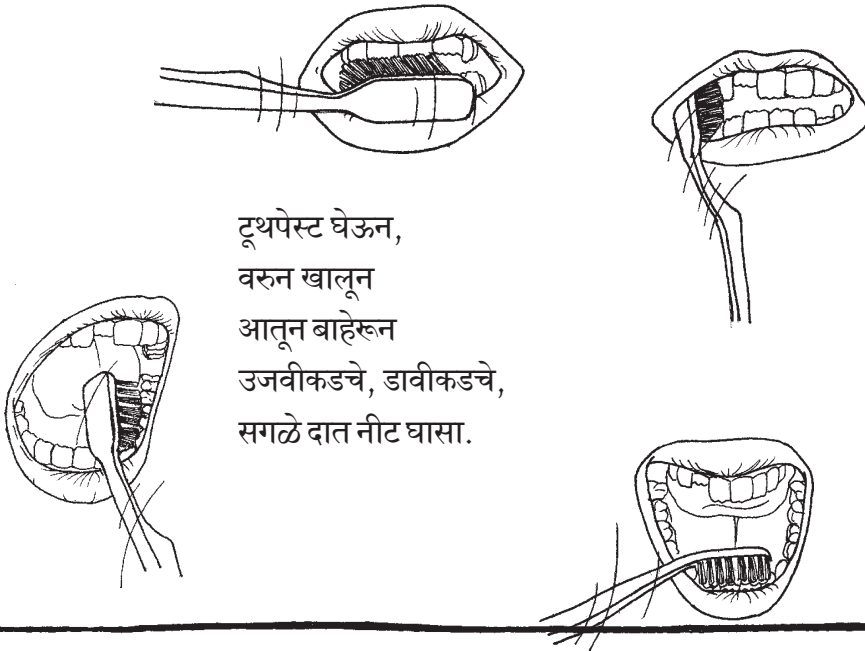 टूथपेस्ट घेऊन,
वरुन खालून
आतून बाहेरून
उजवीकडचे, डावीकडचे,
सगळे दात नीट घासा.